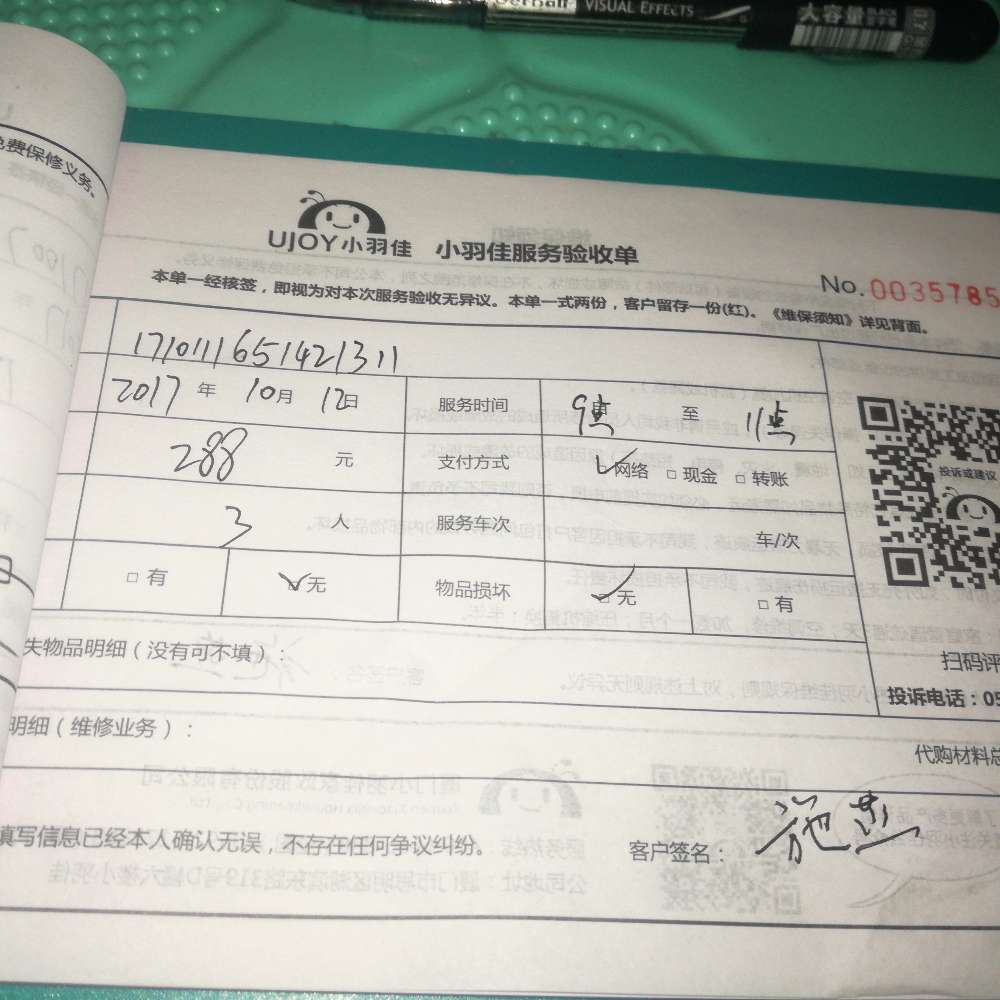 VISUAL EFFECTS
大容量
免费保修义务。
UJOY小羽佳 小羽佳服务验收单
No.0035785
本单一经核签，即视为对本次服务验收无异议。本单一式两份，客户留存一份(红)。《维保须知》详见背面。
2017 年 10月 12日 服务时间 9点 至 11点
288 元 支付方式 □网络 □现金 □转账
3 人 服务车次 车/次
□有 □无 物品损坏 □无 □有
投诉或建议
失物品明细（没有可不填）：
扫码评
投诉电话：05
明细（维修业务）：
代购材料总
填写信息已经本人确认无误，不存在任何争议纠纷。 客户签名：施